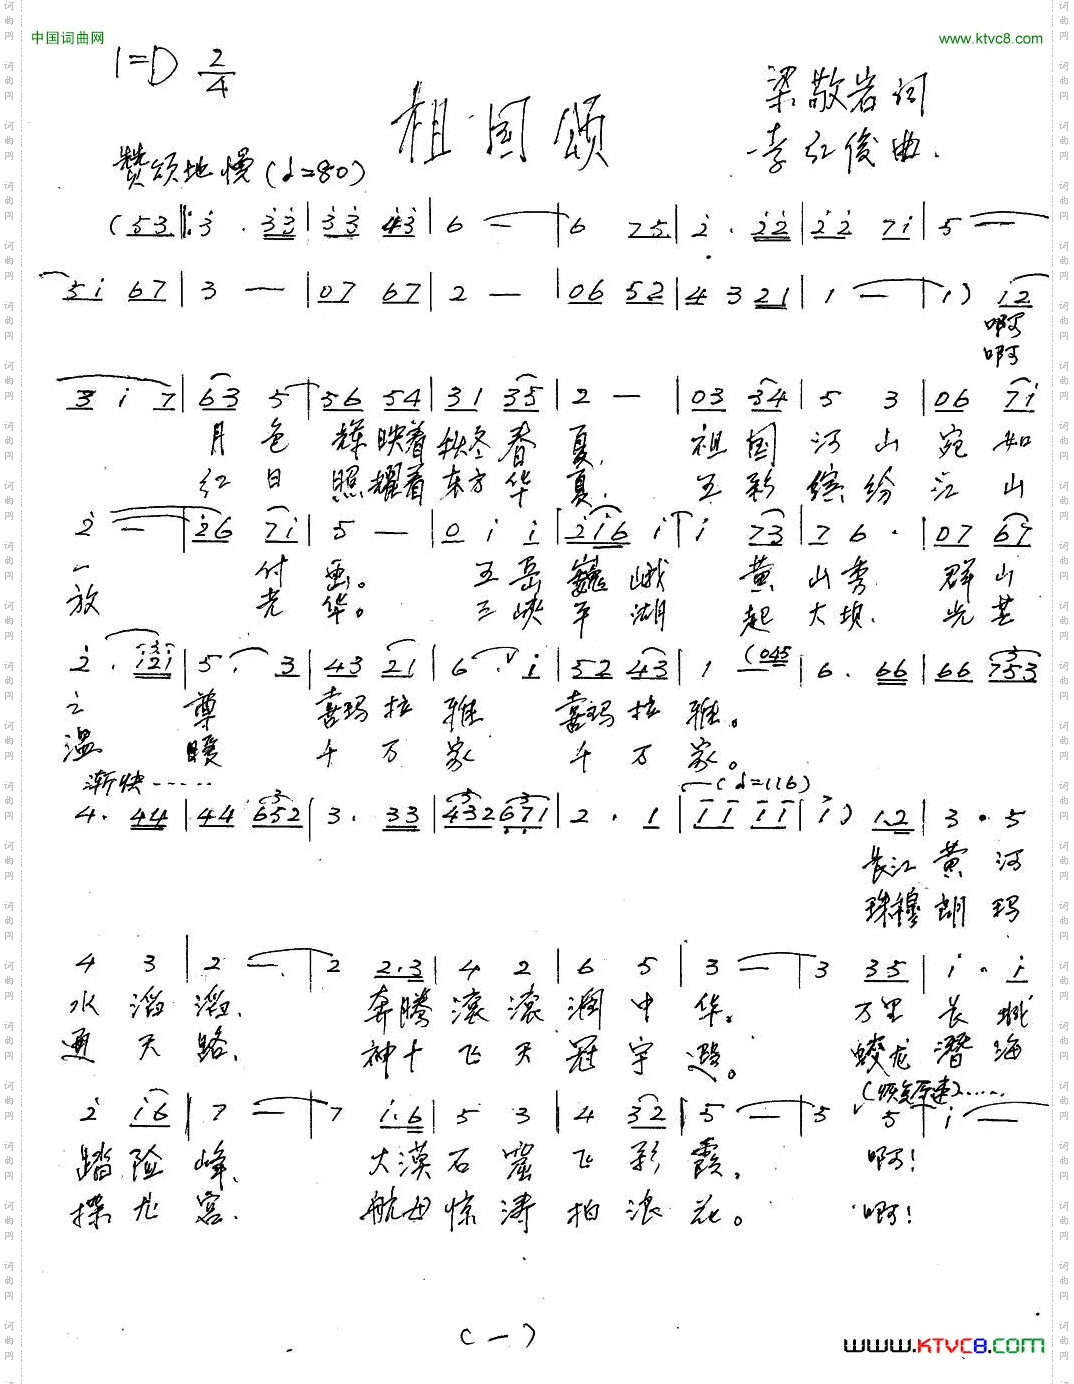 中国词曲网
www.ktvc8.com
1=D 2/4
祖国颂
梁敬岩词
李红俊曲.
赞颂地慢(♩=80)
(53‖:3 . 33|33 43|6 —|6 75|2 . 22|22 71|5 —
51 67|3 —|07 67|2 —|06 52|4 3 21|1 —|1) 12
啊
啊
3 1 7|63 5|56 54|31 35|2 —|03 34|5 3|06 71
月色辉映着秋冬春夏, 祖国河山宛如
红日照耀着东方华夏. 五彩缤纷江山
2 —|26 71|5 —|0 1 1|216 1|1 73|7 6 .|07 67
一付画。 五岳巍峨黄山秀 群山
放光华。 三峡平湖起大坝. 光芒
2 . 121|5 . 3|43 21|6 . 1|52 43|1 (045|6 . 66|66 753
之尊喜玛拉雅 喜玛拉雅。
温暖千万家 千万家。
渐快…… (♩=116)
4 . 44|44 652|3 . 33|432 671|2 . 1|11 11|1) 1.2|3 . 5
长江黄河
珠穆朗玛
4 3|2 —|2 2.3|4 2|6 5|3 —|3 35|1 . 1
水滔滔, 奔腾滚滚润中华。 万里长城
通天路, 神十飞天冠宇遐。 蛟龙潜海
(恢复原速)……
2 16|7 —|7 1.6|5 3|4 32|5 —|5 5|1 —
踏险峰, 大漠石窟飞彩霞, 啊!
探龙宫. 航母惊涛拍浪花。 啊!
(一)
www.KTVC8.COM